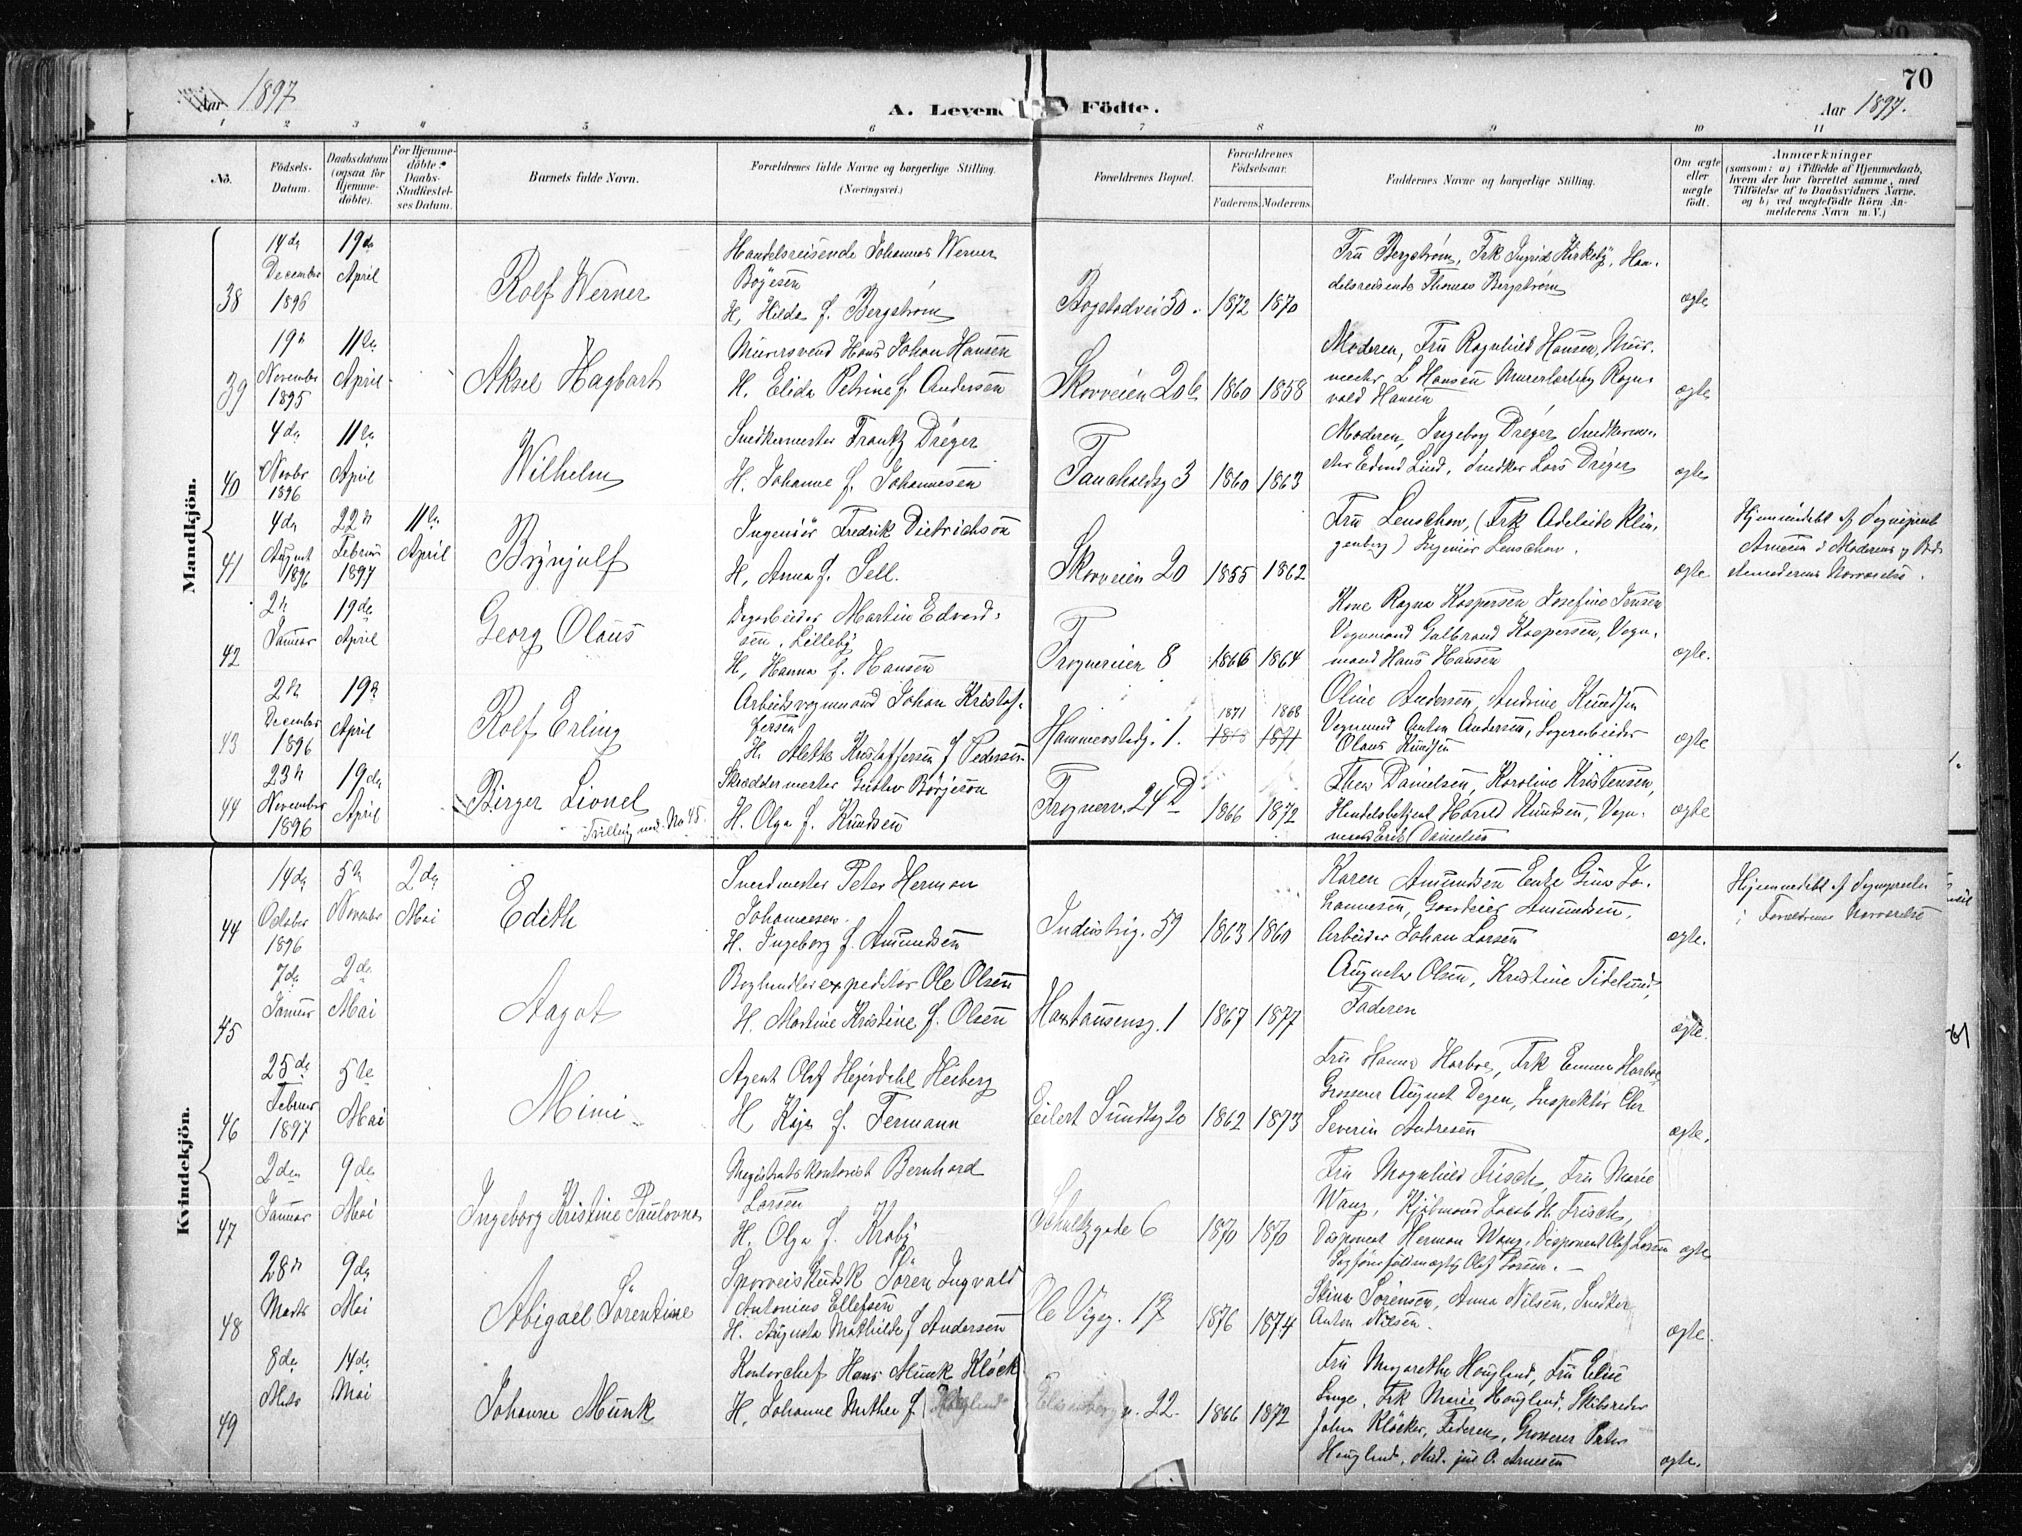 70
Aar 1897
A. Leven
Födte.
Aar 1897.
1 2 3 4 5 6 7 8 9 10 11
No.
Födsels-
Datum.
Daabsdatum
(ogsaa for
Hjemme-
döbte).
For Hjemme-
döbte:
Daabs-
Stadfæstel-
ses Datum.
Barnets fulde Navn.
Forældrenes fulde Navne og borgerlige Stilling.
(Næringsvei.)
Forældrenes Bopæl.
Forældrenes
Födselsaar.
Faderens.
Moderens.
Faddernes Navne og borgerlige Stilling.
Om ægte
eller
uægte
födt.
Anmærkninger
(saasom: a) i Tilfælde af Hjemmedaab,
hvem der har forrettet samme, med
Tilföielse af to Daabsvidners Navne,
og b) ved uægtefödte Börn An-
melderens Navn m. V.)
Mandkjön.
38
14de
December
1896
19de
April
Rolf Werner
Handelsreisende Johannes Werner
Böyesen
H. Hilda f. Bergström
Bogstadvei 50.
1872
1870
Fru Bergström, Frk Ingrid Kirkeby, Han-
delsreisende Thomas Bergström
ægte
39
19n
November
1895
11te
April
Aksel Hagbart
Murersvend Hans Johan Hansen
H. Elida Petrine f. Andersen
Skovveien 20b
1860
1858
Moderen, Fru Ragnhild Hansen, Mur-
mester L Hansen Murerlærling Ragn-
vald Hansen
ægte
40
4de
Novbr
1896
11te
April
Wilhelm
Snedkermester Frantz Dréyer
H. Johanne f. Johannesen
Fauchaldsg 3
1860
1863
Moderen, Ingeborg Dréyer, Snedkermes-
ter Edvard Lind, Snedker Lars Dréyer
ægte
41
4de
August
1896
22n
Februar
1897
11te
April
Brynjulf
Ingeniör Fredrik Dietrichson
H. Anna f. Sell.
Skovveien 20
1855
1862
Fru Lenschow, (Frk Adelaide Klin-
genberg) Ingeniör Lenschow.
ægte
Hjemmedöbt af Sognepræst
Arnesen i Moderens og Bed-
stemoderens Nærværelse.
42
2n
Januar
19de
April
Georg Olaus
Martin Edvard-
sen. Lilleby
H. Hanna f. Hansen
Frognerveien 8
1866
1864
Kone Ragna Kaspersen Josefine Jensen
Vognmand Gulbrand Kaspersen, Vogn-
mand Hans Hansen
ægte.
43
2n
December
1896
19n
April
Rolf Erling
Arbeidsvognmand Johan Kristof-
fersen
H. Alette Kristoffersen f Pedersen
Hammerstadg. 1.
1871
1868
1871
Oline Andersen, Andrine Knudsen
Vognmand Anton Andersen,
Olaus Knudsen
ægte
44
23n
November
1896
19de
April
Birger Lionel
Tvilling med No 45.
Skræddermester Gustav Börjeson
H. Olga f. Knudsen
Frognerv. 24D
1866
1872
Thea Danielsen, Karoline Kristensen,
Handelsbetjent Harald Knudsen, Vogn-
mand Erik Danielsen
ægte
Kvindekjön.
44
14de
October
1896
5n
November
2de
Mai
Edith
Peter Herman
Johannesen.
H. Ingeborg f. Amundsen
Industrig. 59
1863
1860
Karen Amundsen Enke Gina Jo-
hannesen, Gaardeier Amundsen,
Arbeider Johan Larsen
ægte.
Hjemmedöbt af Sognepræsten
i Forældrenes Nærværelse
45
7de
Januar
2de
Mai
Aagot
Boghandlerexpeditör Ole Olsen
H. Martine Kristine f. Olsen
Hansteensg. 1
1867
1877
Augusta Olsen, Kristine Tidelund,
Faderen
ægte.
46
25de
Februar
1897
5te
Mai
Mimi
Agent Olaf Hejerdahl Heiberg
H Kaja f. Fermann
Eilert Sundtsg 20
1862
1873
Fru Hanna Harboe, Frk Emma Harboe,
Grosserer August Degen, Inspektör Chr
Severin Andresen
ægte.
47
2den
Januar
9de
Mai
Ingeborg Kristine Paulovna
Magistratskontorist Bernhard
Larsen
H. Olga f. Kraby
Schultzgade 6
1870
1870
Fru Magnhild Frisch, Fru Marie
Wang, Kjöbmand Jacob H. Frisch,
Disponent Herman Wang, Disponent Olaf Larsen
Sagförerfuldmægtig Olaf Larsen.
ægte
48
28n
Marts
9de
Mai
Abigael Sörentine
Sporveiskudsk Sören Ingvald
Antonius Ellefsen
H. Augusta Mathilde f Andersen
Ole Vigsg. 17
1876
1874
Stina Sörensen, Anna Nilsen, Snedker
Anton Nilsen.
ægte.
49
8de
Marts
14de
Mai
Johanne Munk
Kontorchef Hans Munk Klöcker
H. Johanne Mathea f. Houglund
Elisenberg v. 22.
1866
1872
Fru Margarethe Houglund, Fru Elise
Lange, Frk Marie Houglund, Skibsreder
John Klöcker, Faderen, Grosserer Peter
Houglund, Stud. jur O. Arnesen
ægte.